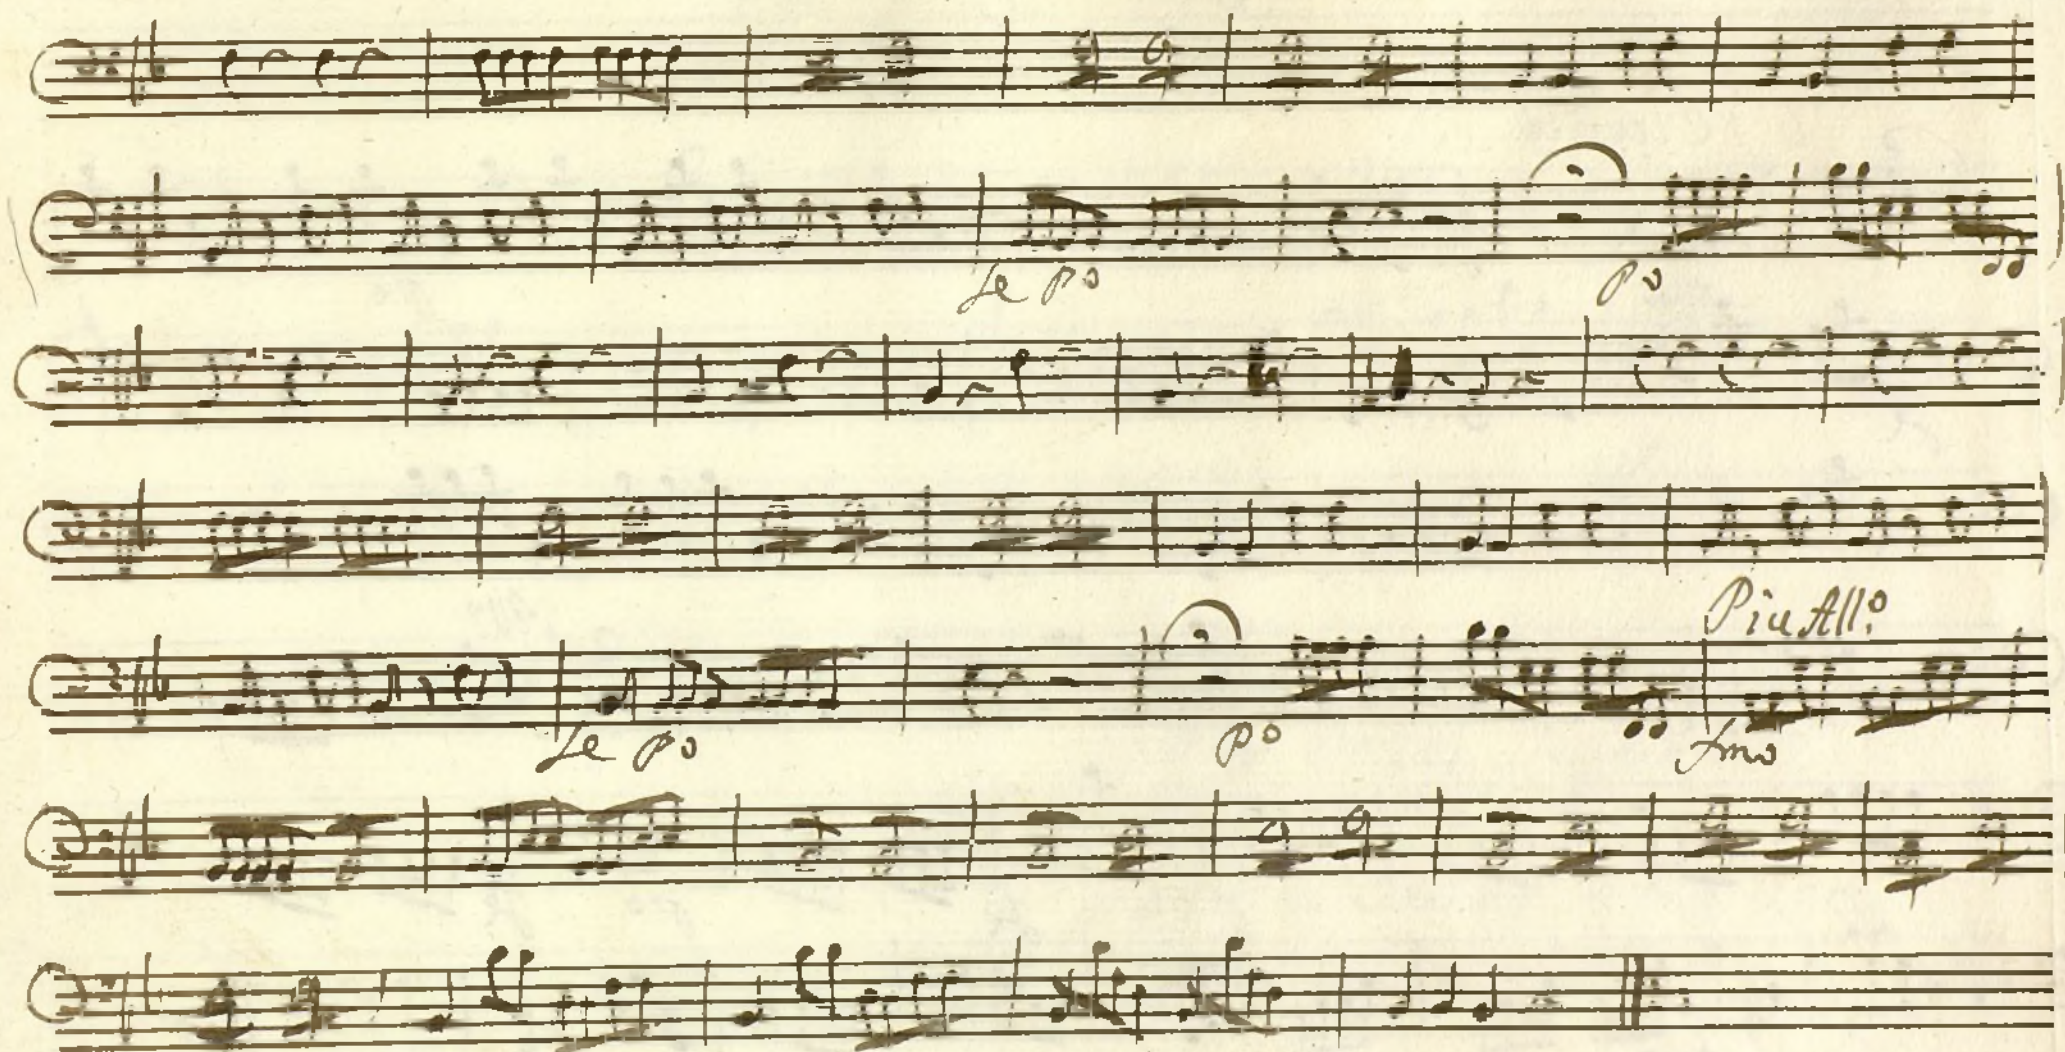 Le po
po
Piu All:o
Le po
po
fmo